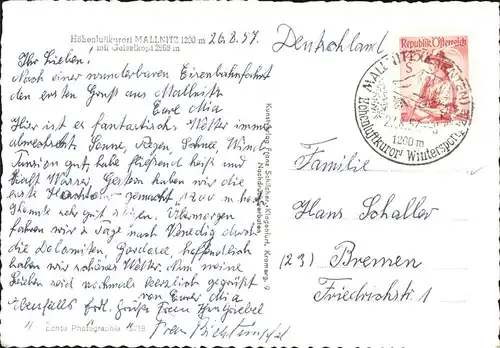 Höhenluftkurort MALLNITZ 1200 m
mit Geiselkopf 2968 m
26.8.57.
Ihr Lieben!
Nach einer wunderbaren Eisenbahnfahrt
den ersten Gruß aus Mallnitz
Eure Mia
Hier ist es fantastisch. Wetter immer
Sonne, Regen, Schnee, Wind.
Pension gut, habe fließend heiß und
kalt Wasser. Gestern haben wir die
erste gemacht, 1200 m hoch
konnte sehr gut Übermorgen
fahren wir 2 Tage nach Venedig durch
die Dolomiten, Gardasee, hoffentlich
haben wir schönes Wetter. Ihr meine
Lieben seid nochmals herzlich gegrüßt
von Eurer Mia
Ebenfalls frdl. Grüße Frau
" " Frau
Echte Photographie
Kunstverlag Franz Schilcher, Klagenfurt, 9
Nachdruck verboten
Deutschland
Republik Österreich
MALLNITZ
1200 m
Höhenluftkurort Wintersport
Familie
Hans Schaller
(23) Bremen
Friedrichstr. 1